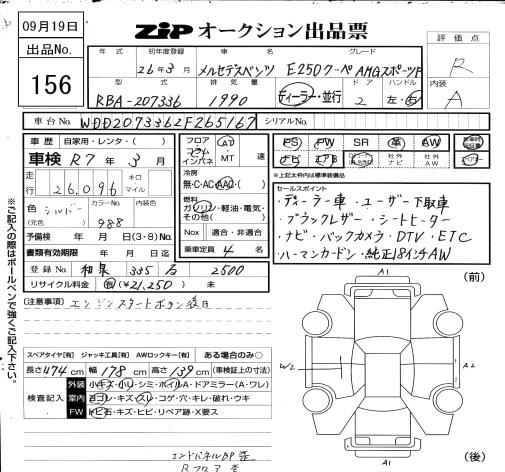 09月19日
出品No.
156
ZiP オークション出品票
評価点
R
内装
A
年式 初年度登録 車名 グレード
26年3月 メルセデスベンツ E250クーペ AMGスポーツP
型式 排気量 ドア ハンドル
RBA-207336 1990 ディーラー・並行 2 左・右
車台No. WDD2073362F265167 シリアルNo.
車歴 自家用・レンタ・( )
車検 R7年3月
走行 26,096 キロ マイル
色 シルバー カラーNo. 988 内装色
(元色)
予備検 年 月 日(3・8)No.
書類有効期限 年 月 日迄
登録No. 和泉 335 2500
リサイクル料金 有 ¥21,250 未
フロア コラム インパネ AT MT 速
冷房
無・C・AC・AAC
燃料
ガソリン・軽油・電気・その他( )
Nox 適合・非適合
乗車定員 4 名
PS PW SR 革 AW
ナビ エアB 社外ナビ 社外AW
※上記太枠内は標準装備品
セールスポイント
・ディーラー車 ・ユーザー下取車
・ブラックレザー ・シートヒーター
・ナビ・バックカメラ・DTV・ETC
・ハーマンカードン・純正18インチAW
[注意事項] エンジンスタートボタン後日
※ご記入の際はボールペンで強くご記入下さい。
スペアタイヤ[有] ジャッキ工具[有] AWロックキー[有] ある場合のみ○
長さ474cm 幅178cm 高さ139cm (車検証上の寸法)
検査記入
外装 小キズ・小凹・シミ・ホイルA・ドアミラー(A・ワレ)
室内 ヨゴレ・キズ・スレ・コゲ・穴・キレ・破れ・ウキ
FW トビ石・キズ・ヒビ・リペア跡・X要ス
(前)
A1
W2
A2
A1
(後)